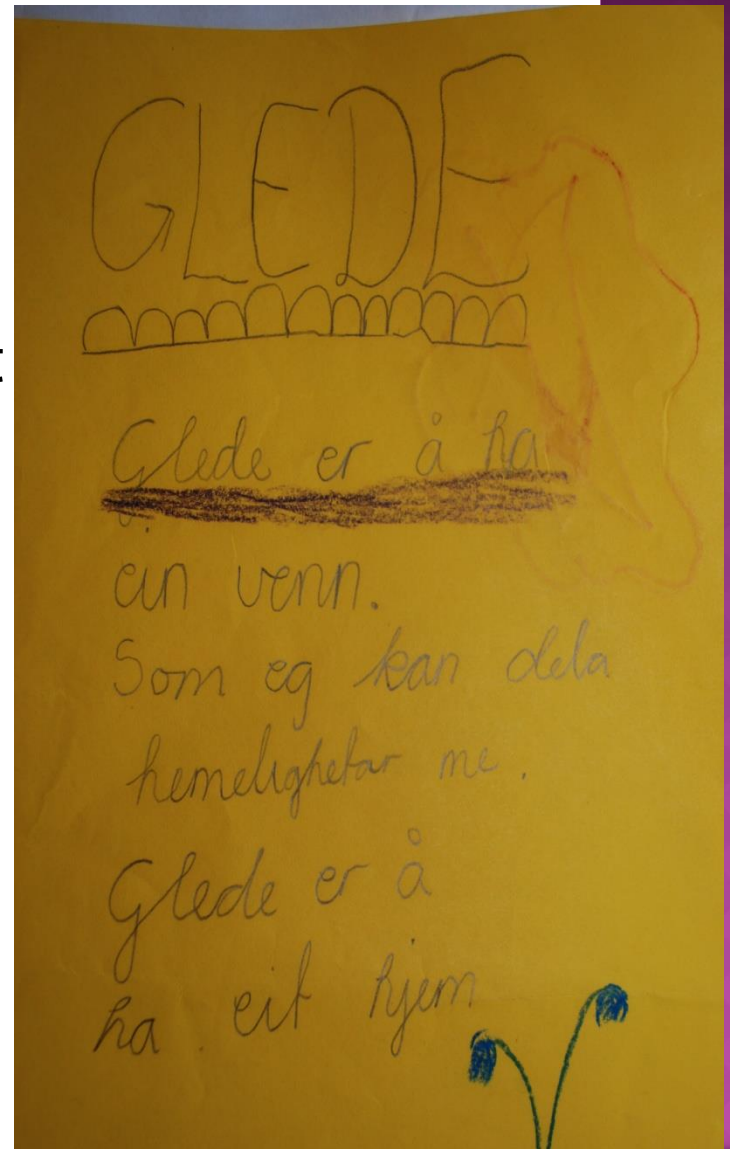 GLEDE
Glede er å ha
ein venn.
Som eg kan dela
hemelighetar me.
Glede er å
ha eit hjem